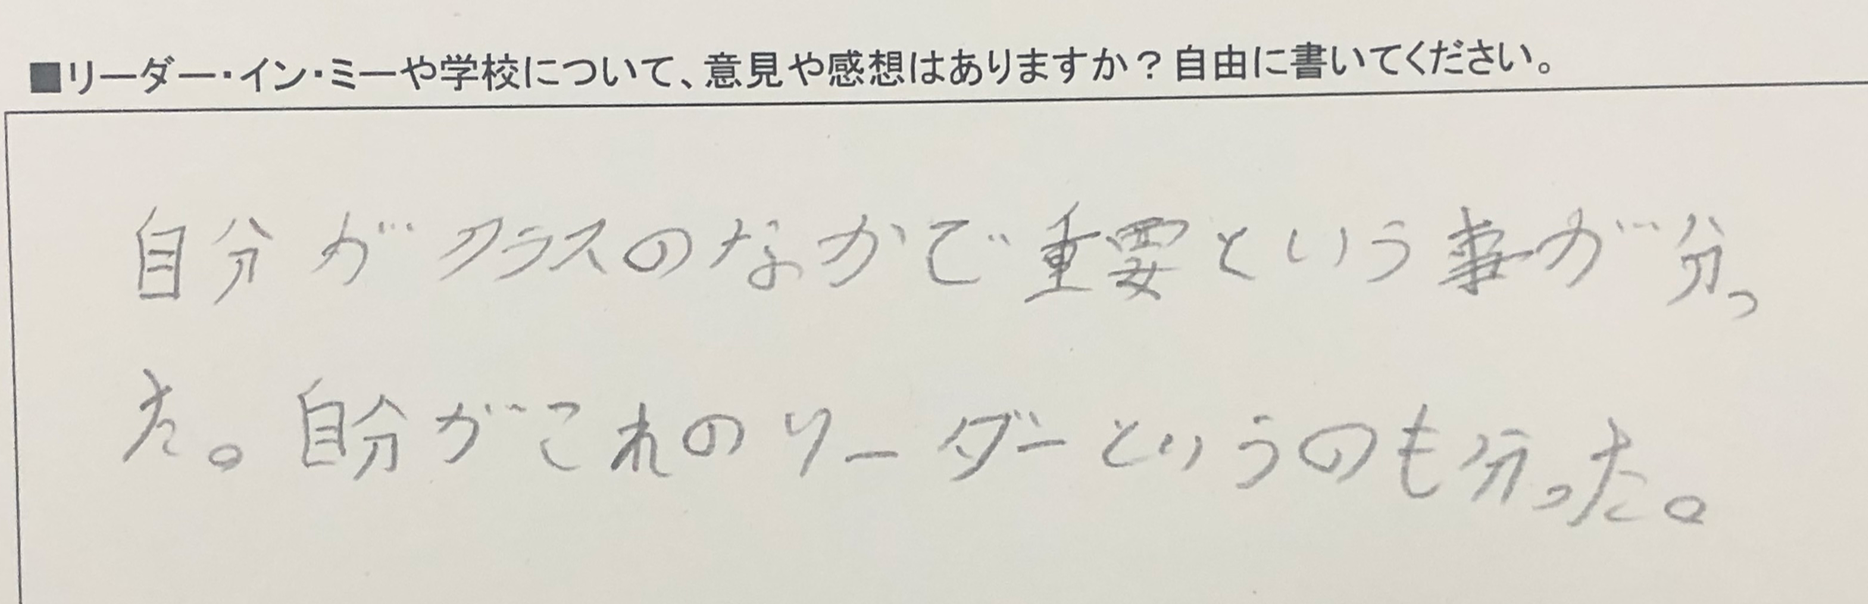 ■リーダー・イン・ミーや学校について、意見や感想はありますか？自由に書いてください。
自分がクラスのなかで重要という事が分っ
た。自分がこれのリーダーというのも分った。